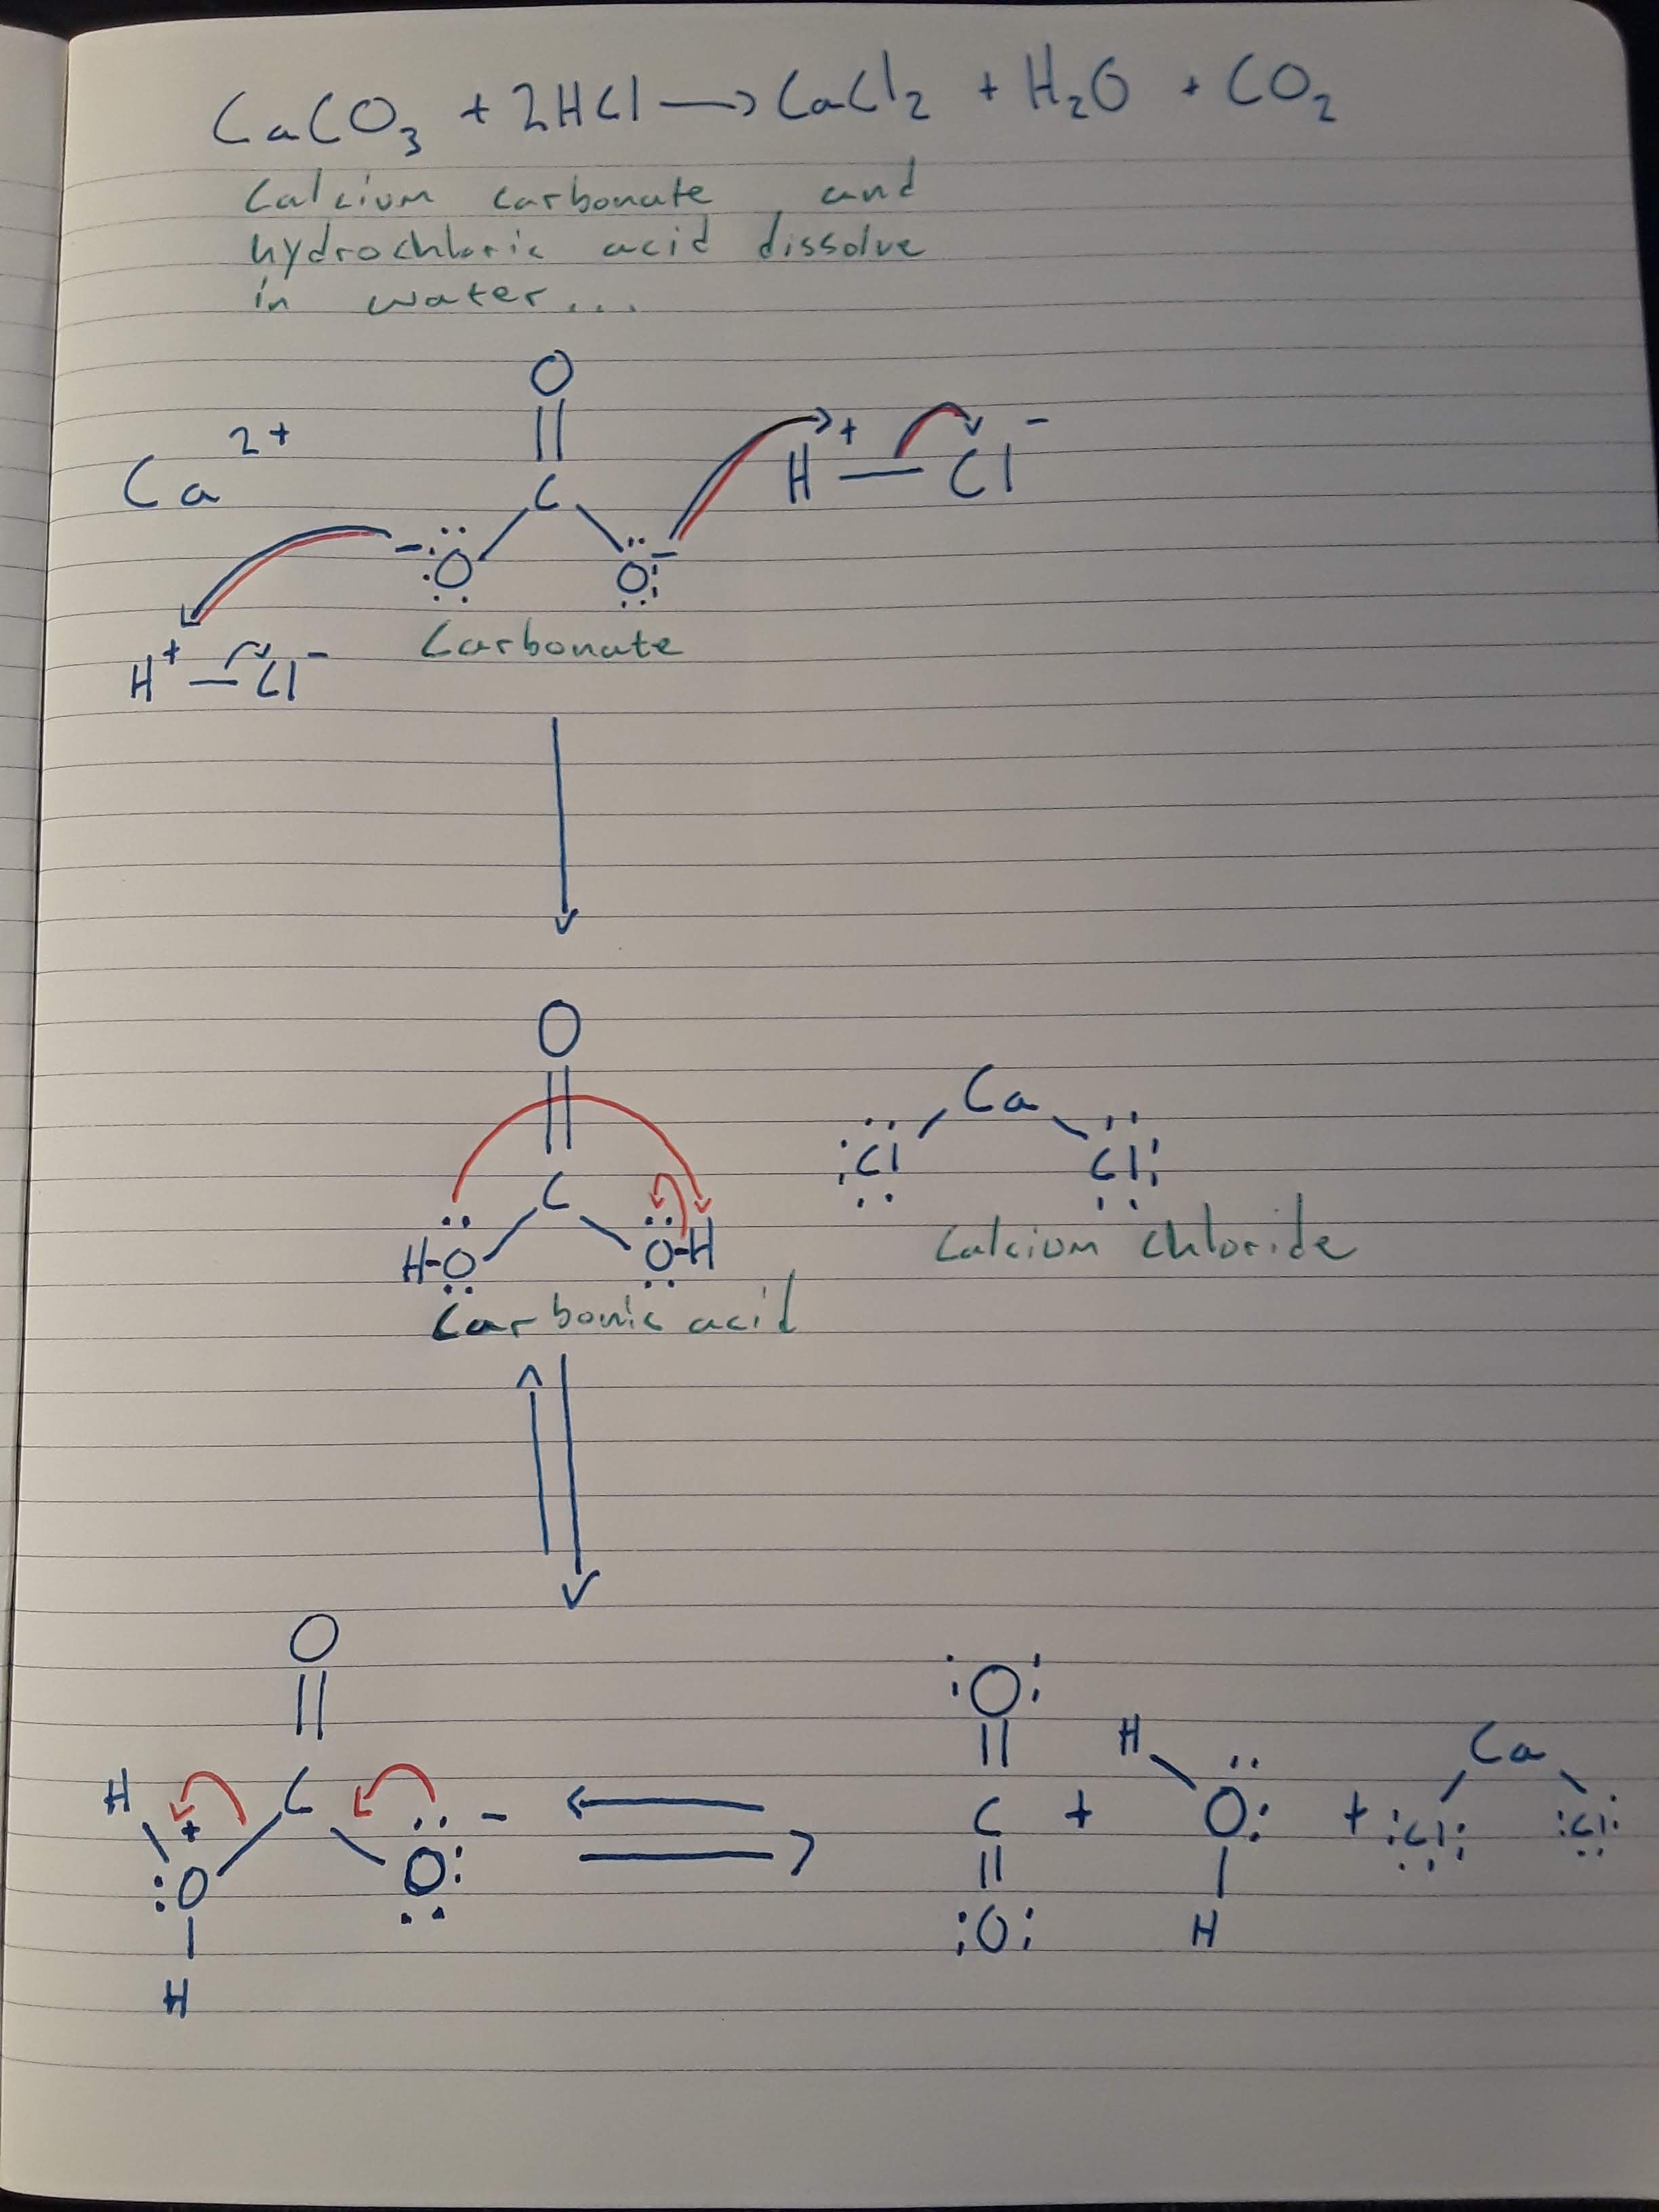 CaCO₃ + 2HCl → CaCl₂ + H₂O + CO₂
Calcium carbonate and
hydrochloric acid dissolve
in water...
O
Ca 2+
C
H + — Cl -
- O
O -
H + — Cl -
Carbonate
O
C
Ca
Cl
Cl
H-O
O-H
Calcium chloride
Carbonic acid
O
O
H
Ca
H
C
-
C + O + Cl Cl
+
O
O
O
H
H